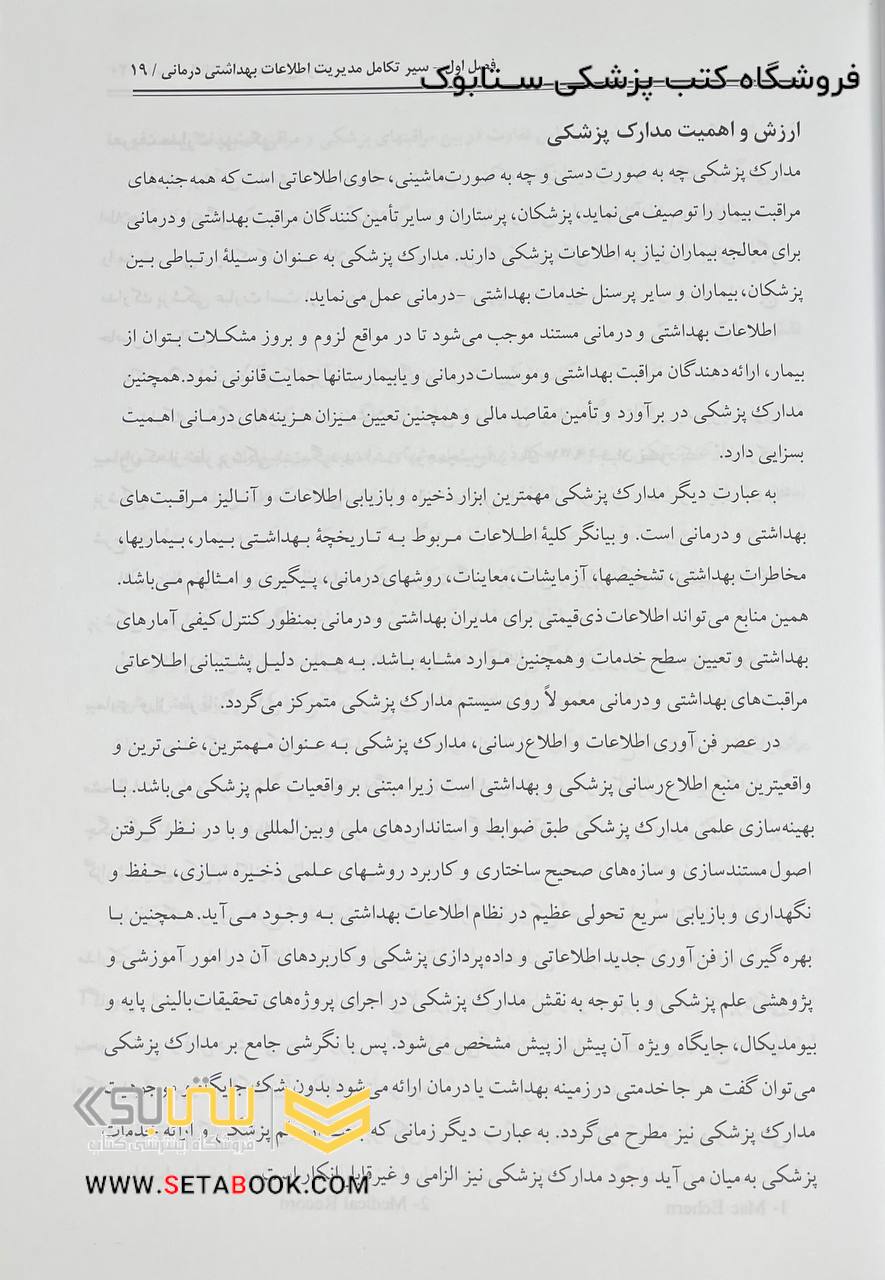 فصل اول - سیر تکامل مدیریت اطلاعات بهداشتی درمانی / ۱۹
فروشگاه کتب پزشکی ستابوک
ارزش و اهمیت مدارک پزشکی
مدارک پزشکی چه به صورت دستی و چه به صورت ماشینی، حاوی اطلاعاتی است که همه جنبه‌های
مراقبت بیمار را توصیف می‌نماید، پزشکان، پرستاران و سایر تأمین‌کنندگان مراقبت بهداشتی و درمانی
برای معالجه بیماران نیاز به اطلاعات پزشکی دارند. مدارک پزشکی به عنوان وسیلهٔ ارتباطی بین
پزشکان، بیماران و سایر پرسنل خدمات بهداشتی –درمانی عمل می‌نماید.
اطلاعات بهداشتی و درمانی مستند موجب می‌شود تا در مواقع لزوم و بروز مشکلات بتوان از
بیمار، ارائه‌دهندگان مراقبت بهداشتی و موسسات درمانی و یا بیمارستانها حمایت قانونی نمود. همچنین
مدارک پزشکی در برآورد و تأمین مقاصد مالی و همچنین تعیین میزان هزینه‌های درمانی اهمیت
بسزایی دارد.
به عبارت دیگر مدارک پزشکی مهمترین ابزار ذخیره و بازیابی اطلاعات و آنالیز مراقبت‌های
بهداشتی و درمانی است. و بیانگر کلیهٔ اطلاعات مربوط به تاریخچهٔ بهداشتی بیمار، بیماریها،
مخاطرات بهداشتی، تشخیصها، آزمایشات، معاینات، روشهای درمانی، پیگیری و امثالهم می‌باشد.
همین منابع می‌تواند اطلاعات ذی‌قیمتی برای مدیران بهداشتی و درمانی بمنظور کنترل کیفی آمارهای
بهداشتی و تعیین سطح خدمات و همچنین موارد مشابه باشد. به همین دلیل پشتیبانی اطلاعاتی
مراقبت‌های بهداشتی و درمانی معمولاً روی سیستم مدارک پزشکی متمرکز می‌گردد.
در عصر فن آوری اطلاعات و اطلاع‌رسانی، مدارک پزشکی به عنوان مهمترین، غنی‌ترین و
واقعیترین منبع اطلاع‌رسانی پزشکی و بهداشتی است زیرا مبتنی بر واقعیات علم پزشکی می‌باشد. با
بهینه‌سازی علمی مدارک پزشکی طبق ضوابط و استانداردهای ملی و بین‌المللی و با در نظر گرفتن
اصول مستندسازی و سازه‌های صحیح ساختاری و کاربرد روشهای علمی ذخیره سازی، حفظ و
نگهداری و بازیابی سریع تحولی عظیم در نظام اطلاعات بهداشتی به وجود می‌آید. همچنین با
بهره گیری از فن آوری جدید اطلاعاتی و داده‌پردازی پزشکی و کاربردهای آن در امور آموزشی و
پژوهشی علم پزشکی و با توجه به نقش مدارک پزشکی در اجرای پروژه‌های تحقیقات بالینی پایه و
بیومدیکال، جایگاه ویژه آن پیش از پیش مشخص می‌شود. پس با نگرشی جامع بر مدارک پزشکی
می‌توان گفت هر جا خدمتی در زمینه بهداشت یا درمان ارائه می‌شود بدون شک جایگاه و موجودیت
مدارک پزشکی نیز مطرح می‌گردد. به عبارت دیگر زمانی که پزشکی و ارائه خدمات
پزشکی به میان می‌آید وجود مدارک پزشکی نیز الزامی و غیرقابل انکار است.
ستابوک
فروشگاه اینترنتی کتاب
WWW.SETABOOK.COM